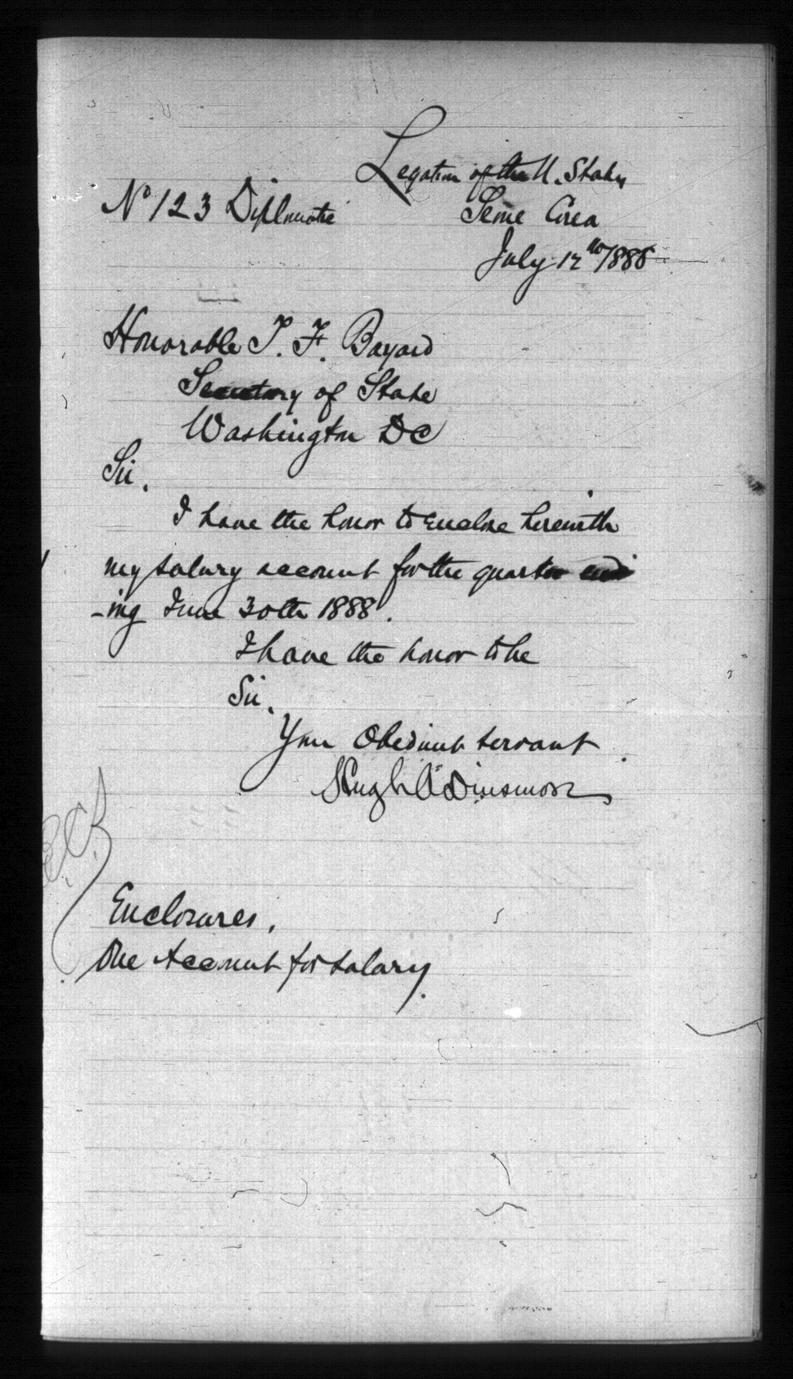 Legation of the U. States
No 123 Diplomatic
Seoul Corea
July 12th 1888
Honorable T. F. Bayard
Secretary of State
Washington DC
Sir,
I have the honor to enclose herewith
my salary account for the quarter end
-ing June 30th 1888.
I have the honor to be
Sir,
Your Obedient servant
Hugh A Dinsmore
Enclosures,
One Account for salary.